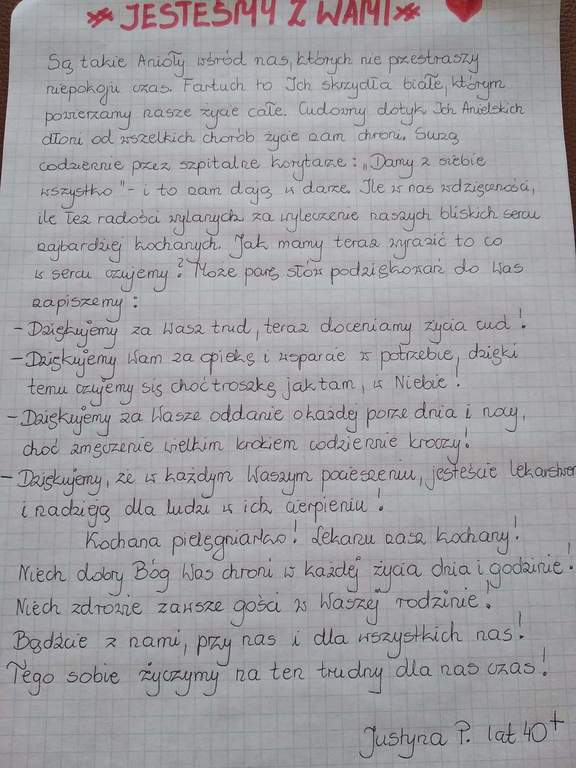 * JESTEŚMY Z WAMI *
Są takie Anioły wśród nas, których nie przestraszy
niepokoju czas. Fartuch to Ich skrzydła białe, którym
powierzamy nasze życie całe. Cudowny dotyk Ich Anielskich
dłoni od wszelkich chorób życie nam chroni. Suną
codziennie przez szpitalne korytarze: "Damy z siebie
wszystko" - i to nam dają w darze. Ile w nas wdzięczności,
ile też radości wylanych za wyleczenie naszych bliskich sercu
najbardziej kochanych. Jak mamy teraz wyrazić to co
w sercu czujemy? Może parę słów podziękowań do Was
zapiszemy:
- Dziękujemy za Wasz trud, teraz doceniamy życia cud!
- Dziękujemy Wam za opiekę i wsparcie w potrzebie, dzięki
temu czujemy się choć troszkę jak tam, w Niebie!
- Dziękujemy za Wasze oddanie o każdej porze dnia i nocy,
choć zmęczenie wielkim krokiem codziennie kroczy!
- Dziękujemy, że w każdym Waszym pocieszeniu, jesteście lekarstwem
i nadzieją dla ludzi w ich cierpieniu!
Kochana pielęgniarko! Lekarzu nasz kochany!
Niech dobry Bóg Was chroni w każdej życia dnia i godzinie!
Niech zdrowie zawsze gości w Waszej rodzinie!
Bądźcie z nami, przy nas i dla wszystkich nas!
Tego sobie życzymy na ten trudny dla nas czas!
Justyna P. lat 40+